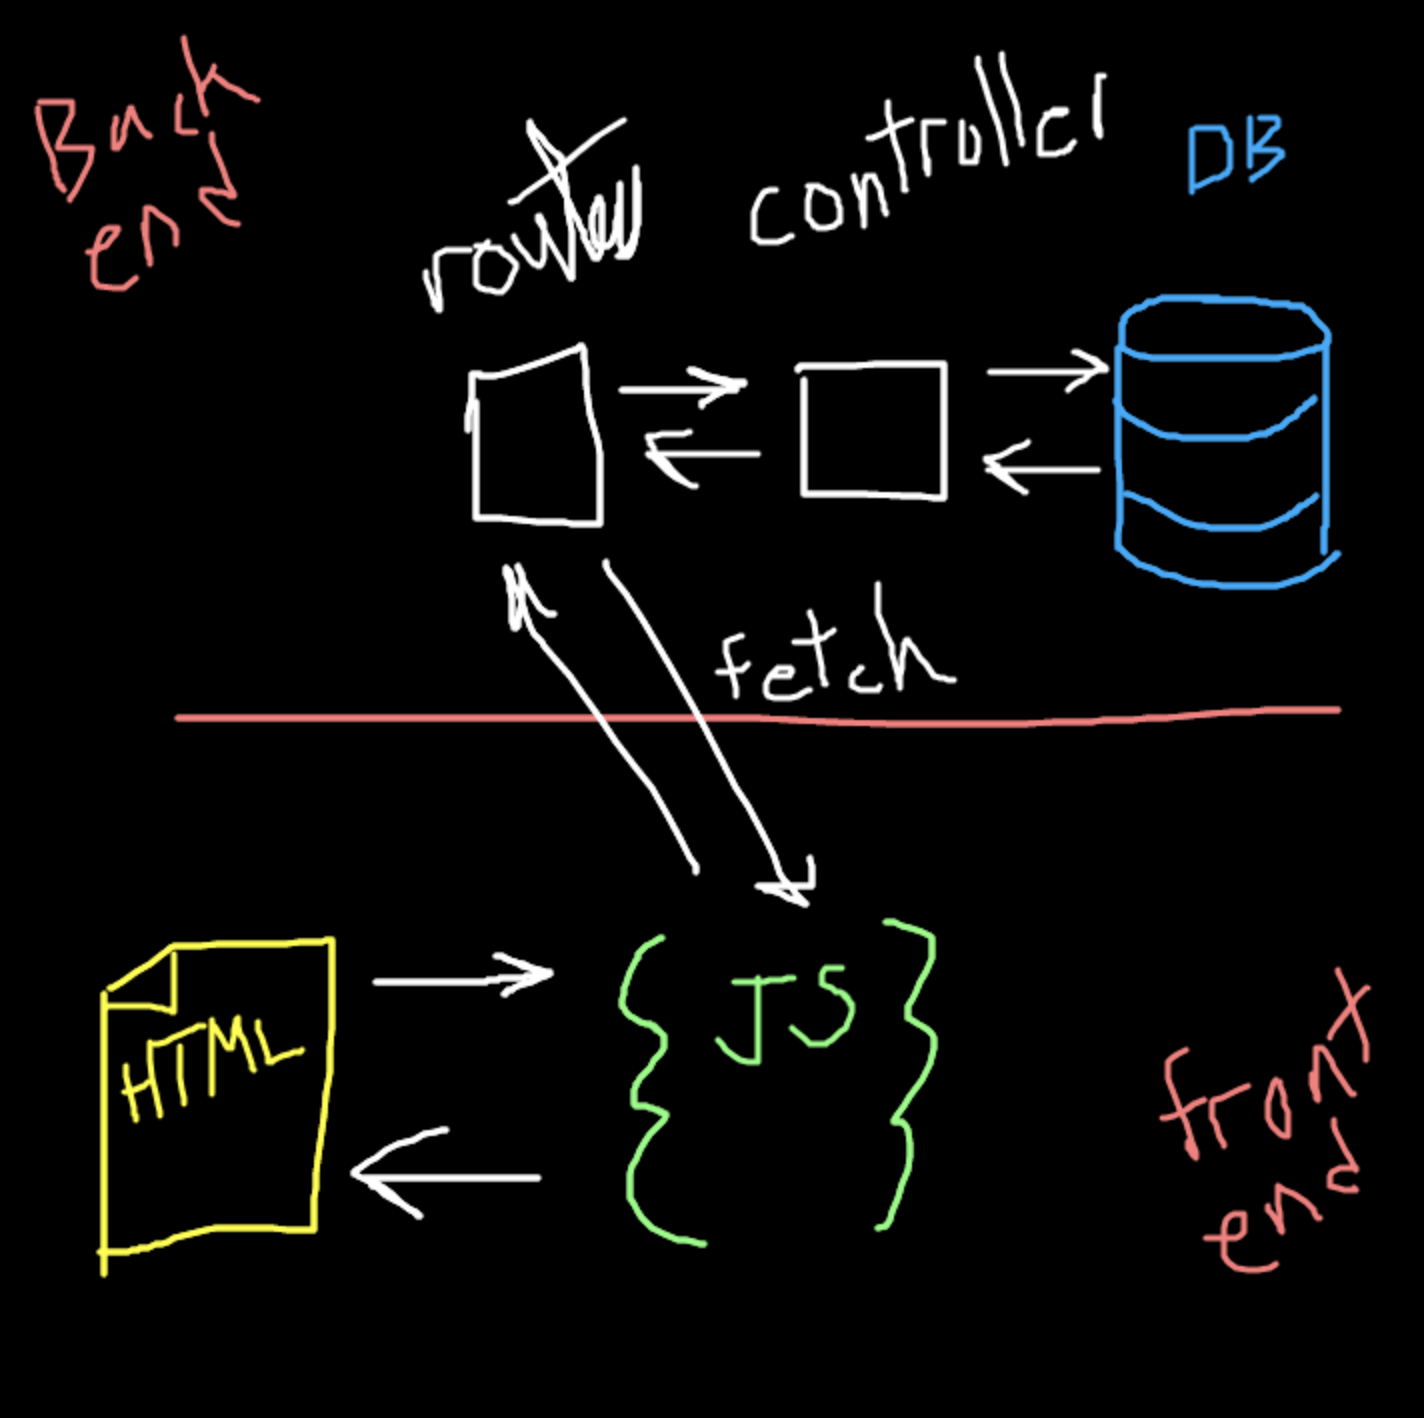 Back
end
routes
controller
DB
fetch
HTML
JS
front
end